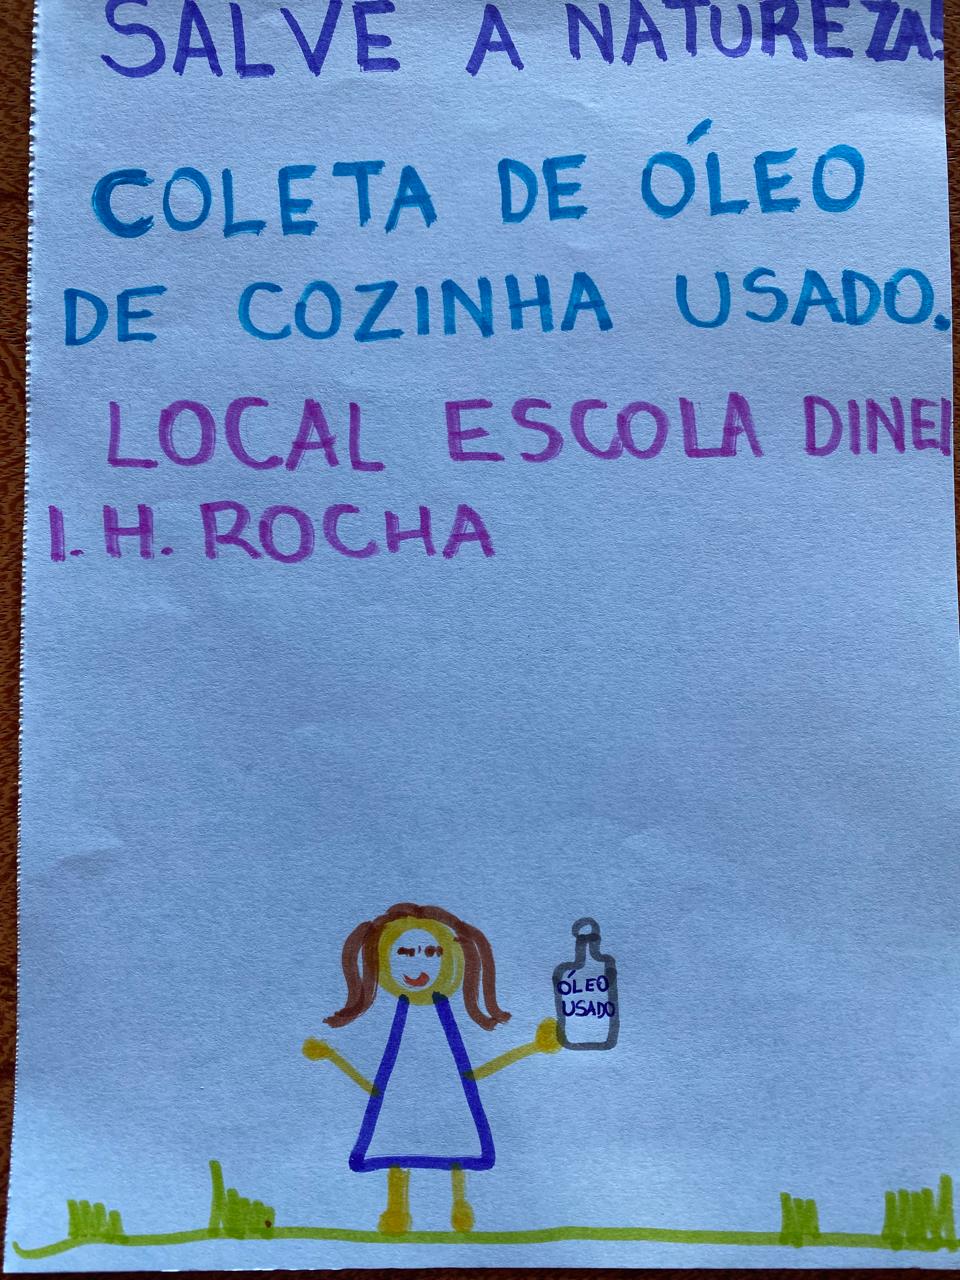 SALVE A NATUREZA!
COLETA DE ÓLEO
DE COZINHA USADO.
LOCAL ESCOLA DINEI
I. H. ROCHA
ÓLEO
USADO